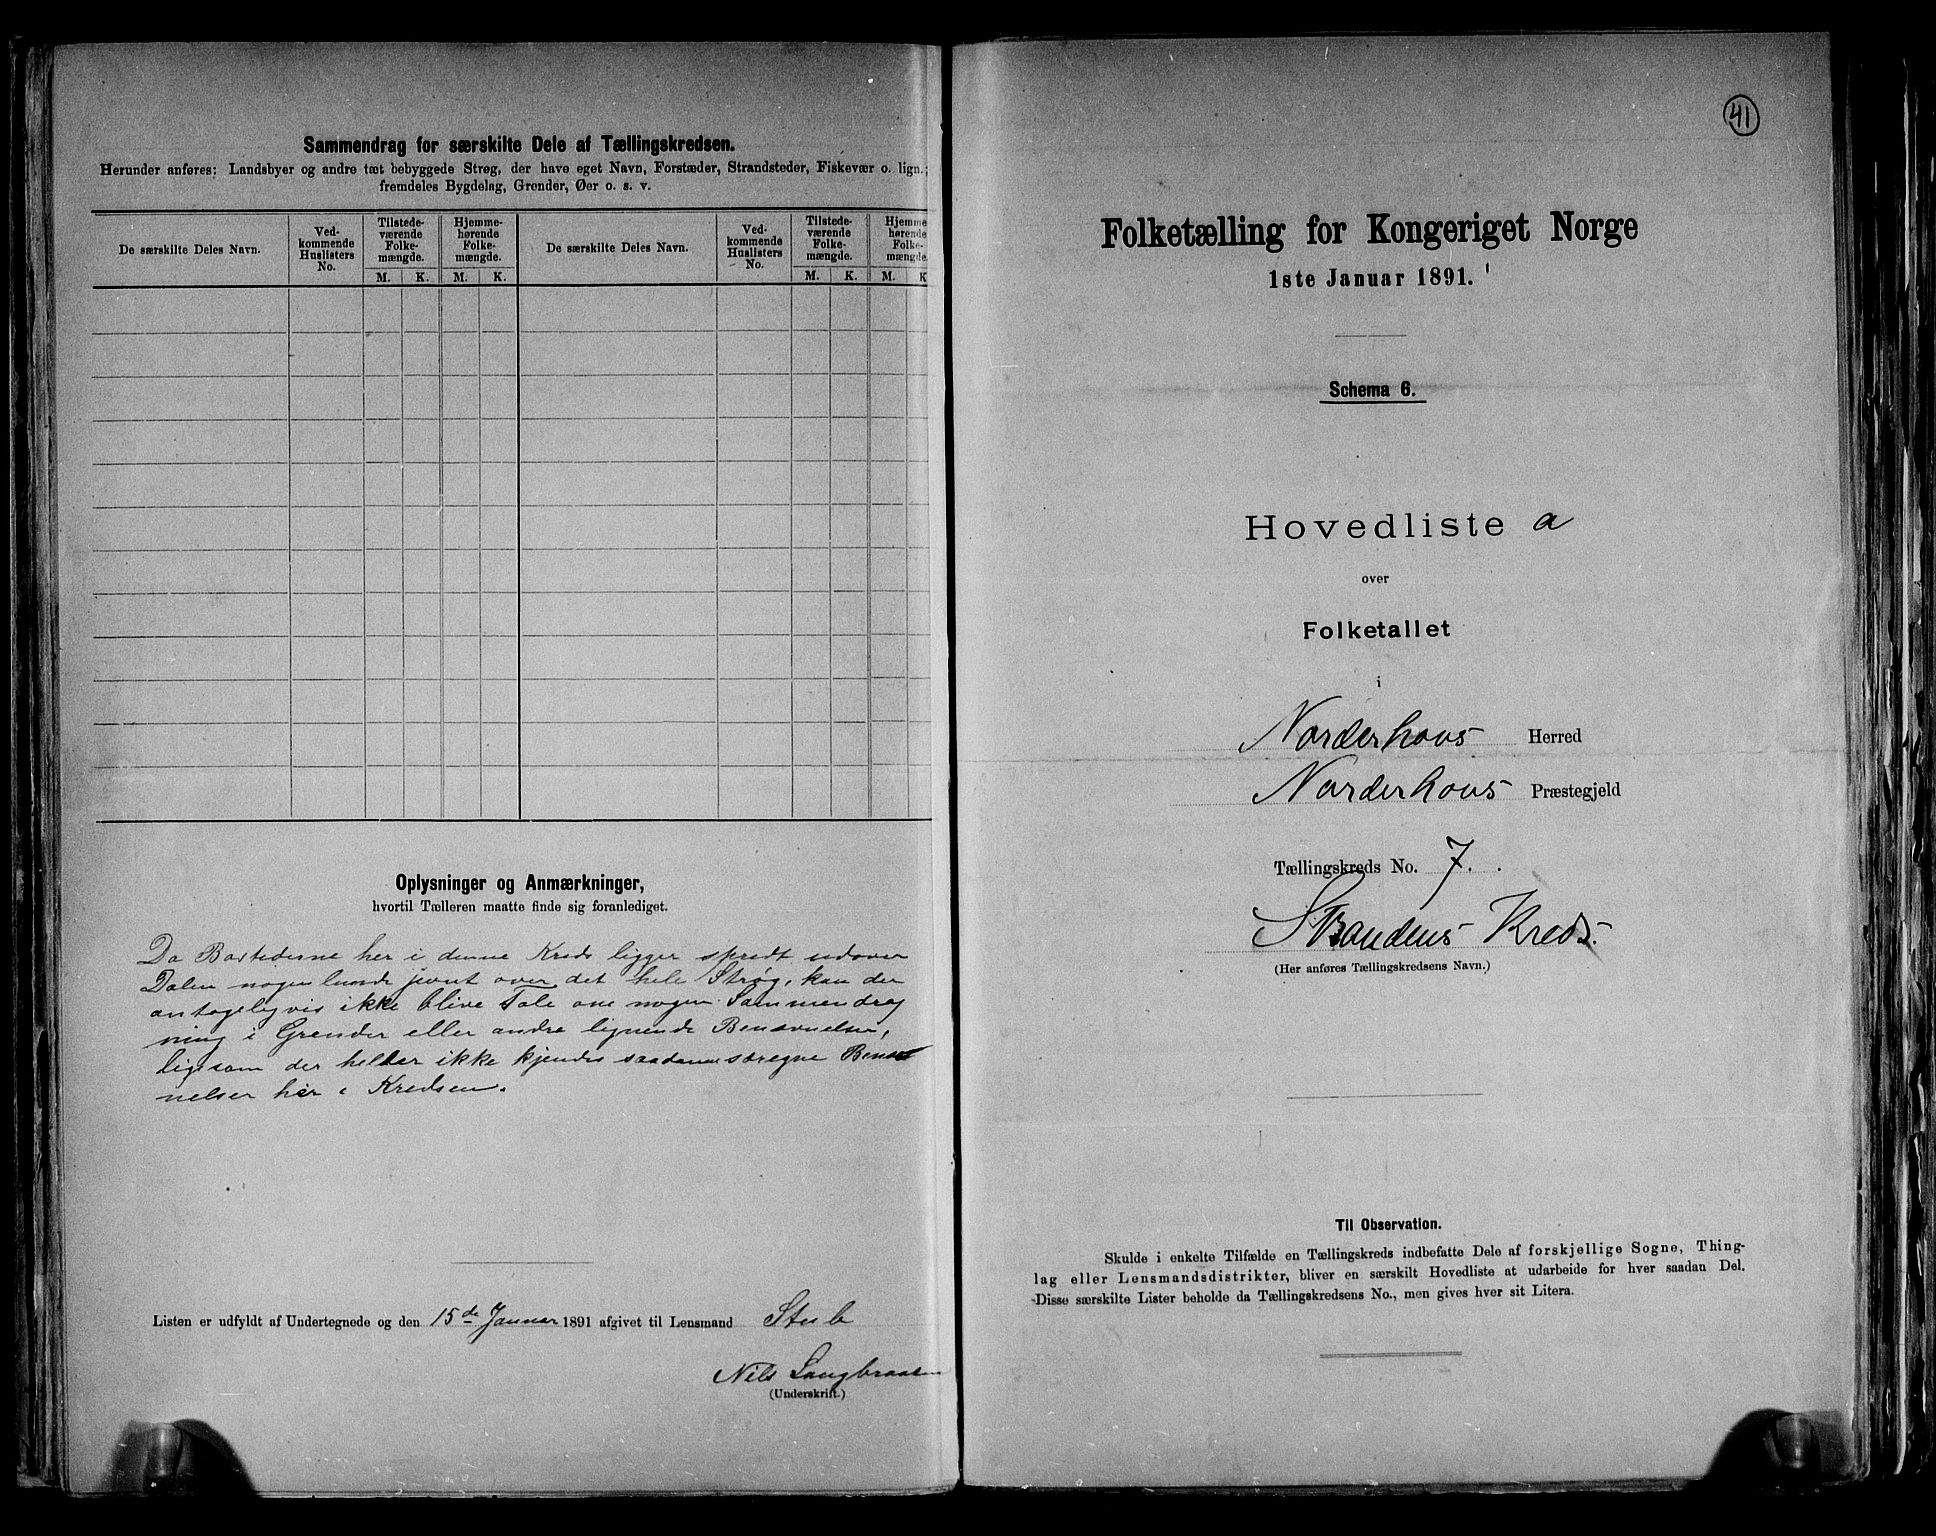 Sammendrag for særskilte Dele af Tællingskredsen.
Herunder anføres: Landsbyer og andre tæt bebyggede Strøg, der have eget Navn, Forstæder, Strandsteder, Fiskevær o. lign.;
fremdeles Bygdelag, Grender, Øer o. s. v.
De særskilte Deles Navn.
Ved-
kommende
Huslisters
No.
Tilstede-
værende
Folke-
mængde.
Hjemme-
hørende
Folke-
mængde.
M. K. M. K.
De særskilte Deles Navn.
Ved-
kommende
Huslisters
No.
Tilstede-
værende
Folke-
mængde.
Hjemme
hørende
Folke-
mængde.
M. K. M. K
Oplysninger og Anmærkninger,
hvortil Tælleren maatte finde sig foranlediget.
Da Bostederne her i denne Kreds ligger spredt udover
Dalen nogenlunde jevnt over det hele Strøg, kan der
antageligvis ikke blive Tale om nogen Sammendrag
ning i Grender eller andre lignende Benævnelser,
ligesom der heller ikke kjendes saadanne særegne Benæv
nelser her i Kredsen.
Listen er udfyldt af Undertegnede og den 15de Januar 1891 afgivet til Lensmand Stub
Nils Langbraaten
(Underskrift.)
41
Folketælling for Kongeriget Norge
1ste Januar 1891.
Schema 6.
Hovedliste a
over
Folketallet
i
Norderhovs Herred
Norderhovs Præstegjeld
Tællingskreds No. 7.
Strandens Kreds.
(Her anføres Tællingskredsens Navn.)
Til Observation.
Skulde i enkelte Tilfælde en Tællingskreds indbefatte Dele af forskjellige Sogne, Thing-
lag eller Lensmandsdistrikter, bliver en særskilt Hovedliste at udarbeide for hver saadan Del.
Disse særskilte Lister beholde da Tællingskredsens No., men gives hver sit Litera.